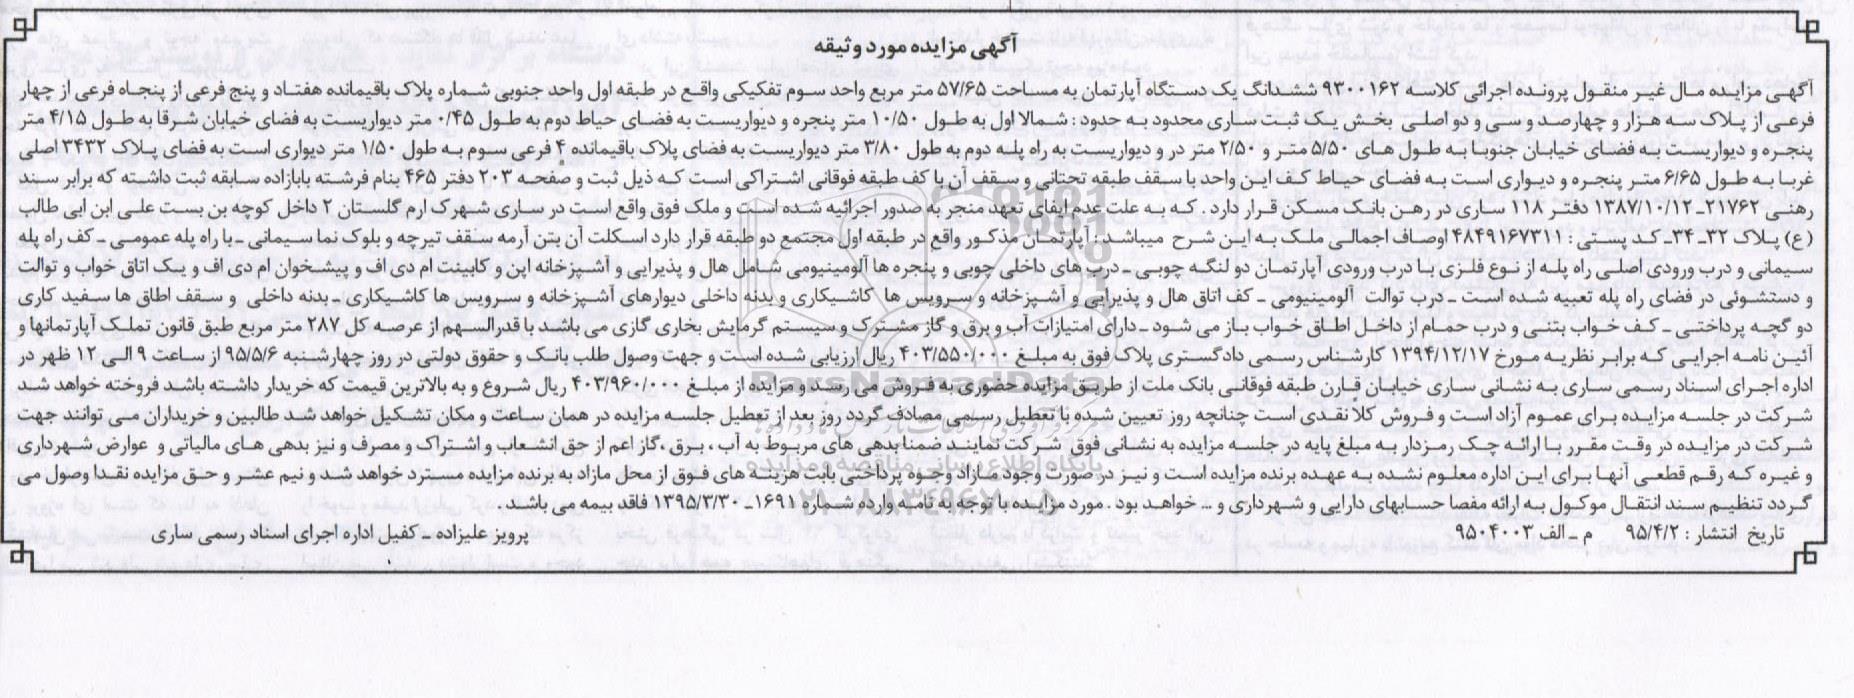 آگهی مزایده مورد وثیقه
آگهی مزایده مال غیر منقول پرونده اجرائی کلاسه ۹۳۰۰۱۶۲ ششدانگ یک دستگاه آپارتمان به مساحت ۵۷/۶۵ متر مربع واحد سوم تفکیکی واقع در طبقه اول واحد جنوبی شماره پلاک باقیمانده هفتاد و پنج فرعی از پنجاه فرعی از چهار
فرعی از پلاک سه هزار و چهارصد و سی و دو اصلی بخش یک ثبت ساری محدود به حدود : شمالا اول به طول ۱۰/۵۰ متر پنجره و دیواریست به فضای حیاط دوم به طول ۰/۴۵ متر دیواریست به فضای خیابان شرقا به طول ۴/۱۵ متر
پنجره و دیواریست به فضای خیابان جنوبا به طول های ۵/۵۰ متر و ۲/۵۰ متر در و دیواریست به راه پله دوم به طول ۳/۸۰ متر دیواریست به فضای پلاک باقیمانده ۴ فرعی سوم به طول ۱/۵۰ متر دیواری است به فضای پلاک ۳۴۳۲ اصلی
غربا به طول ۶/۶۵ متر پنجره و دیواری است به فضای حیاط کف این واحد با سقف طبقه تحتانی و سقف آن با کف طبقه فوقانی اشتراکی است که ذیل ثبت و صفحه ۲۰۳ دفتر ۴۶۵ بنام فرشته بابازاده سابقه ثبت داشته که برابر سند
رهنی ۲۱۷۶۲ـ ۱۳۸۷/۱۰/۱۲ دفتر ۱۱۸ ساری در رهن بانک مسکن قرار دارد که به علت عدم ایفای تعهد منجر به صدور اجرائیه شده است و ملک فوق واقع است در ساری شهرک ارم گلستان ۲ داخل کوچه بن بست علی ابن ابی طالب
(ع) پلاک ۳۲ـ۳۴ـ کد پستی : ۴۸۴۹۱۶۷۳۱۱ اوصاف اجمالی ملک به این شرح میباشد : آپارتمان مذکور واقع در طبقه اول مجتمع دو طبقه قرار دارد اسکلت آن بتن آرمه سقف تیرچه و بلوک نما سیمانی ـ با راه پله عمومی ـ کف راه پله
سیمانی و درب ورودی اصلی راه پله از نوع فلزی با درب ورودی آپارتمان دو لنگه چوبی ـ درب های داخلی چوبی و پنجره ها آلومینیومی شامل هال و پذیرایی و آشپزخانه اپن و کابینت ام دی اف و پیشخوان ام دی اف و یک اتاق خواب و توالت
و دستشوئی در فضای راه پله تعبیه شده است ـ درب توالت آلومینیومی ـ کف اتاق هال و پذیرایی و آشپزخانه و سرویس ها کاشیکاری و بدنه داخلی دیوارهای آشپزخانه و سرویس ها کاشیکاری ـ بدنه داخلی و سقف اطاق ها سفید کاری
دو گچه پرداختی ـ کف خواب بتنی و درب حمام از داخل اطاق خواب باز می شود ـ دارای امتیازات آب و برق و گاز مشترک و سیستم گرمایش بخاری گازی می باشد با قدرالسهم از عرصه کل ۲۸۷ متر مربع طبق قانون تملک آپارتمانها و
آئین نامه اجرایی که برابر نظریه مورخ ۱۳۹۴/۱۲/۱۷ کارشناس رسمی دادگستری پلاک فوق به مبلغ ۴۰۳/۵۵۰/۰۰۰ ریال ارزیابی شده است و جهت وصول طلب بانک و حقوق دولتی در روز چهارشنبه ۹۵/۵/۶ از ساعت ۹ الی ۱۲ ظهر در
اداره اجرای اسناد رسمی ساری به نشانی ساری خیابان قارن طبقه فوقانی بانک ملت از طریق مزایده حضوری به فروش می رسد و مزایده از مبلغ ۴۰۳/۹۶۰/۰۰۰ ریال شروع و به بالاترین قیمت که خریدار داشته باشد فروخته خواهد شد
شرکت در جلسه مزایده برای عموم آزاد است و فروش کلا نقدی است چنانچه روز تعیین شده با تعطیل رسمی مصادف گردد روز بعد از تعطیل جلسه مزایده در همان ساعت و مکان تشکیل خواهد شد طالبین و خریداران می توانند جهت
شرکت در مزایده در وقت مقرر با ارائه چک رمزدار به مبلغ پایه در جلسه مزایده به نشانی فوق شرکت نمایند ضمنا بدهی های مربوط به آب ، برق ،گاز اعم از حق انشعاب و اشتراک و مصرف و نیز بدهی های مالیاتی و عوارض شهرداری
و غیره که رقم قطعی آنها برای این اداره معلوم نشده به عهده برنده مزایده است و نیز در صورت وجود مازاد وجوه پرداختی بابت هزینه های فوق از محل مازاد به برنده مزایده مسترد خواهد شد و نیم عشر و حق مزایده نقدا وصول می
گردد تنظیم سند انتقال موکول به ارائه مفصا حسابهای دارایی و شهرداری و ... خواهد بود . مورد مزایده با توجه به نامه وارده شماره ۱۶۹۱ـ ۱۳۹۵/۳/۳۰ فاقد بیمه می باشد .
تاریخ انتشار : ۹۵/۴/۲ م ـ الف ۹۵۰۴۰۰۳ پرویز علیزاده ـ کفیل اداره اجرای اسناد رسمی ساری
ParsNamadData
پایگاه اطلاع رسانی مناقصه و مزایده
۰۲۱-۸۸۳۴۹۶۷۰-۵